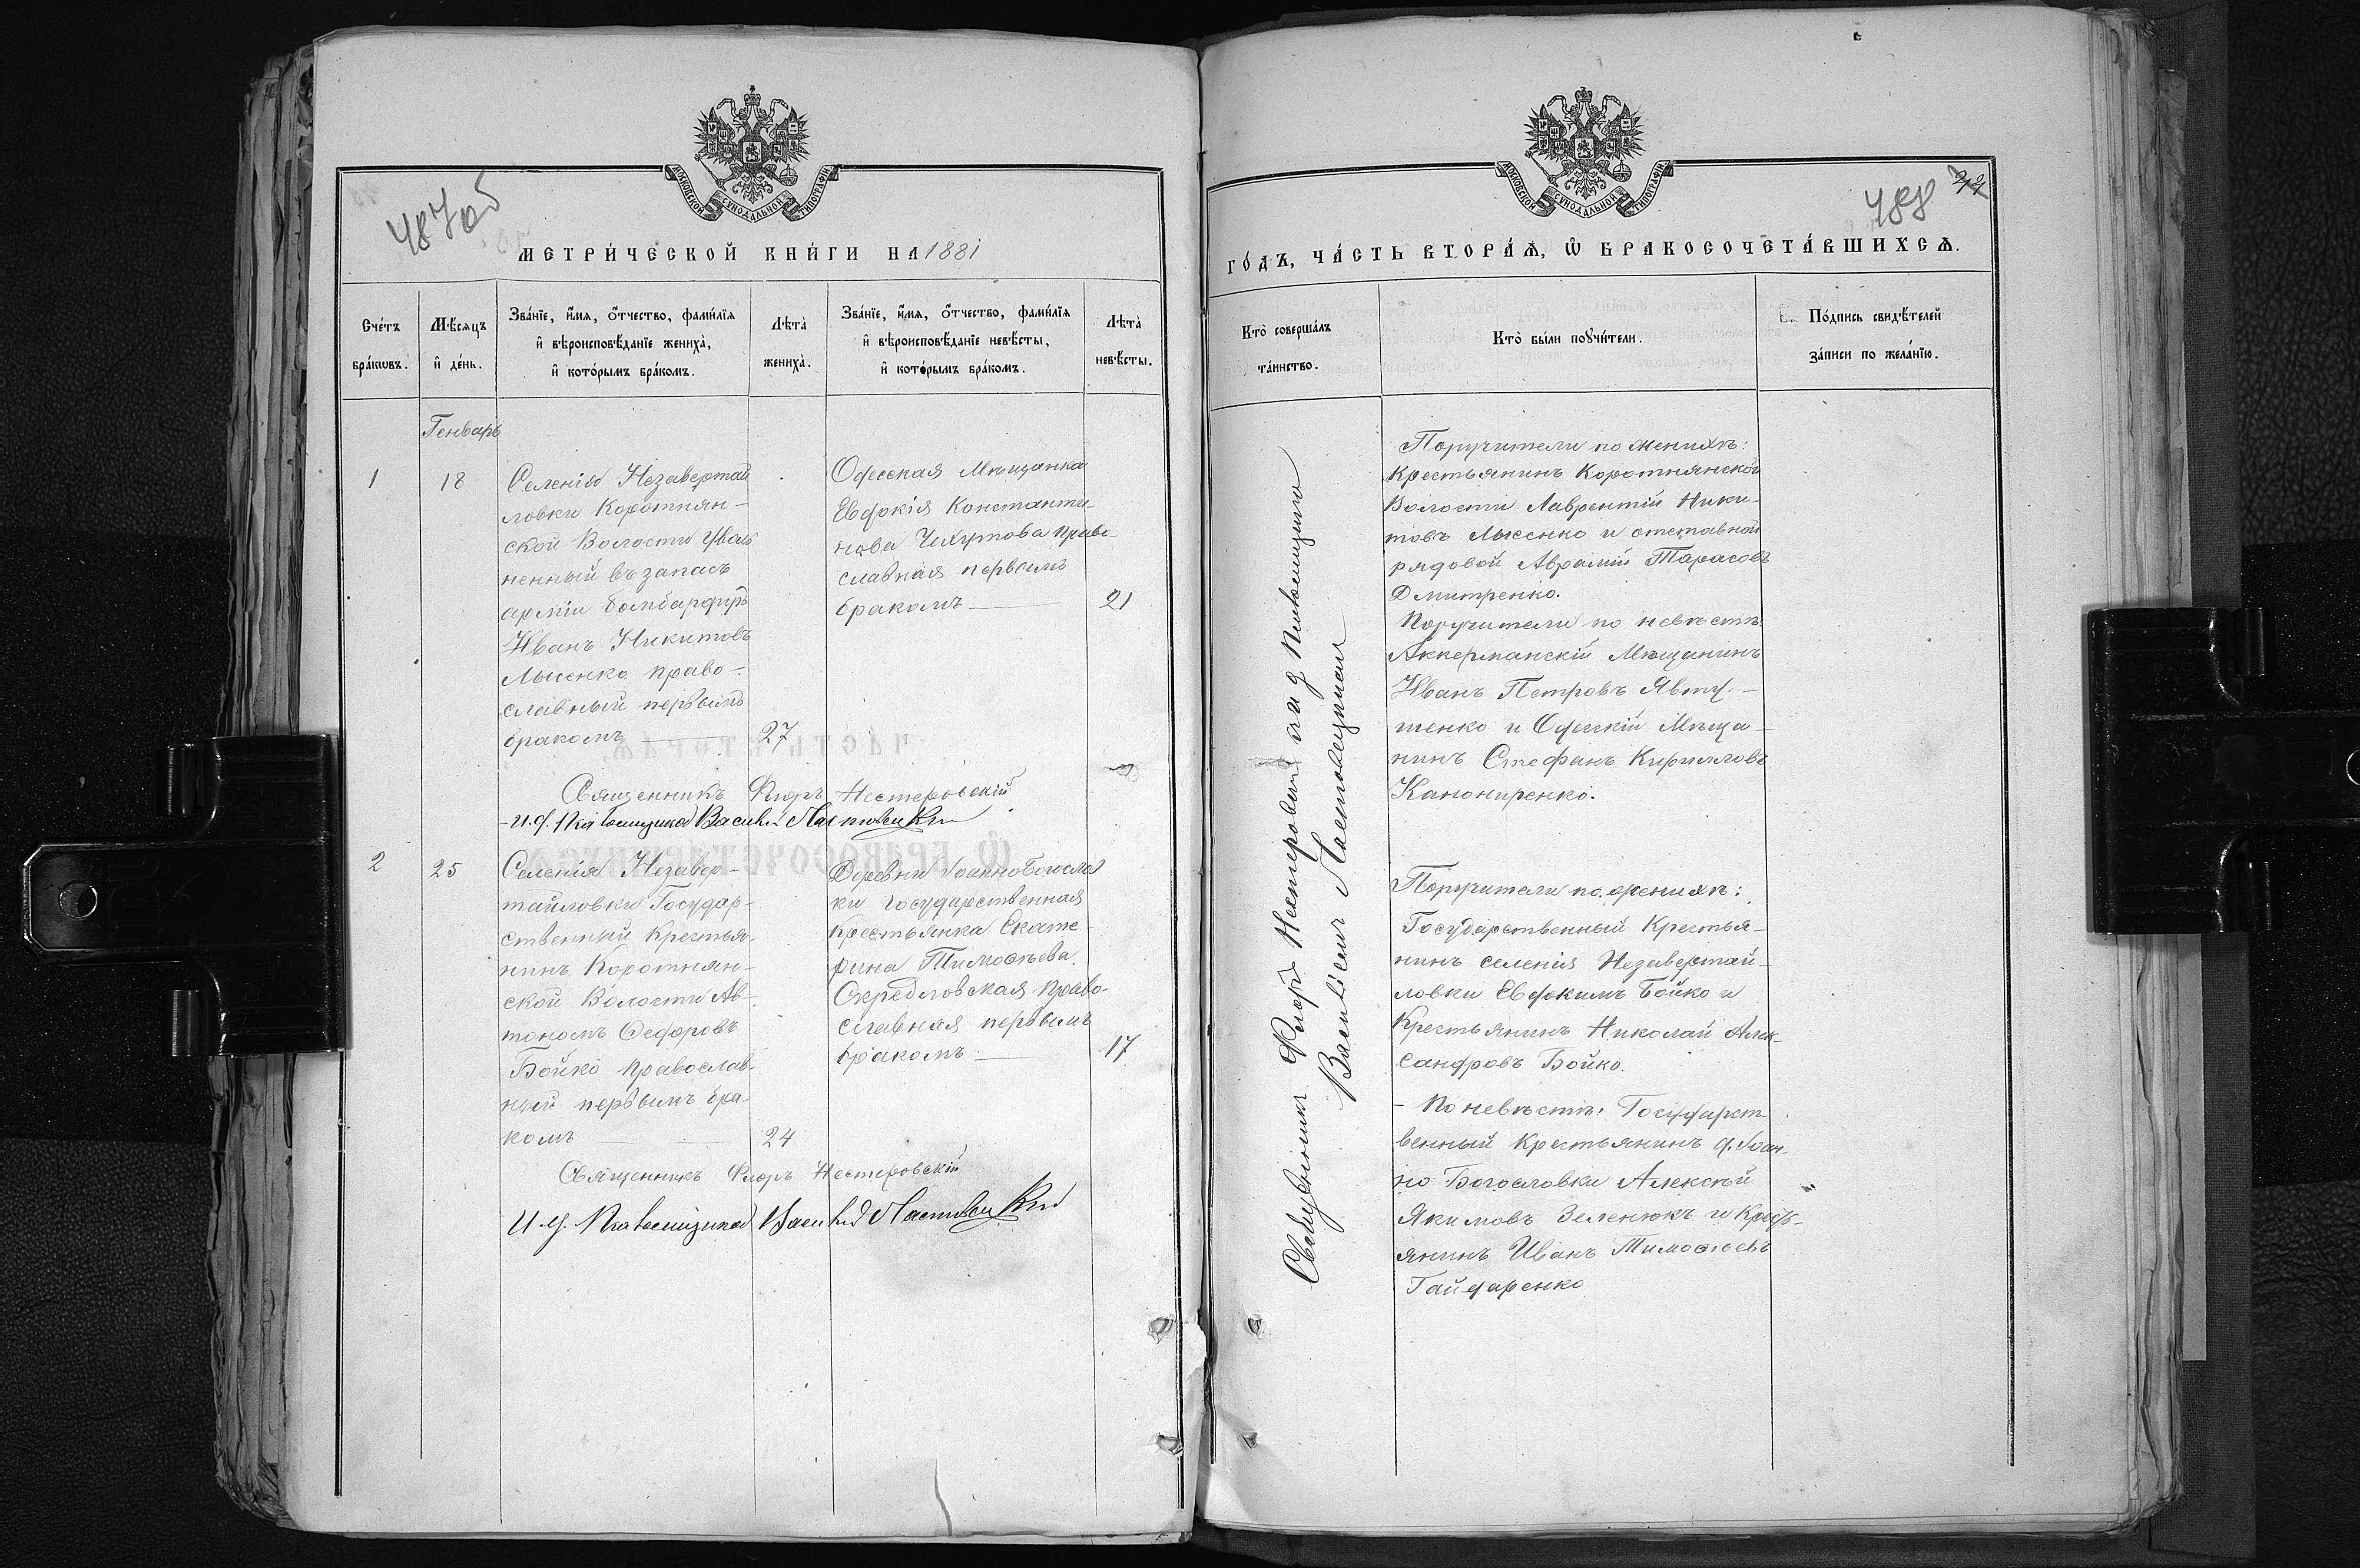 487об
МОСКОВСКОЙ СѴНОДАЛЬНОЙ ТИПОГРАФІИ
МЕТРИ́ЧЕСКОЙ КНИ́ГИ НА 1881
Сче́тъ бра́кѡвъ.
Мѣ́сѧцъ и҆ де́нь.
Зва́нїе, и҆́мѧ, ѻ҆́тчество, фами́лїѧ
и҆ вѣроисповѣ́данїе жениха̀,
и҆ кото́рымъ бра́комъ.
Лѣта̀ жениха̀.
Зва́нїе, и҆́мѧ, ѻ҆́тчество, фами́лїѧ
и҆ вѣроисповѣ́данїе невѣ́сты,
и҆ кото́рымъ бра́комъ.
Лѣта̀ невѣ́сты.
Генварь
1
18
Селенія Незавертай
ловки Коротнян-
ской Волости Уволь
ненный въ запасъ
арміи бомбардиръ
Иванъ Никитовъ
Лысенко право-
славный первымъ
бракомъ
27
Одесская Мѣщанка
Евдокія Константи-
нова Чехутова право-
славная первымъ
бракомъ
21
Священникъ Флоръ Нестеровскій
И.д. Псаломщика Василій Ластовецкій
2
25
Селенія Незавер-
тайловки Государ-
ственный Крестья-
нинъ Коротнян-
ской Волости Ав-
тономъ Ѳедоровъ
Бойко православ-
ный первымъ бра-
комъ
24
Деревни Іоанно Богослов
ки Государственная
Крестьянка Екате
рина Тимоѳѣева
право-
славная первымъ
бракомъ
17
Священникъ Флоръ Нестеровскій
И.д. Псаломщика Василій Ластовецкій
488
МОСКОВСКОЙ СѴНОДАЛЬНОЙ ТИПОГРАФІИ
ГО́ДЪ, ЧА́СТЬ ВТОРА́Ѧ, Ѡ҆ БРАКОСОЧЕТА́ВШИХСѦ.
Кто̀ соверша́лъ
та́инство.
Кто̀ бы́ли поꙋчи́тели.
По́дпись свидѣ́телей
за́писи по жела́нїю.
Священникъ Флоръ Нестеровскій и и.д. Псаломщика
Василій Ластовецкій
Поручители по женихѣ:
Крестьянинъ Коротнянской
Волости Лаврентій Ники-
товъ Лысенко и отставной
рядовой Аврамій Тарасовъ
Дмитренко.
Поручители по невѣстѣ
Аккерманскій Мѣщанинъ
Иванъ Петровъ Явту-
шенко и Одесскій Мѣща-
нинъ Стефанъ Кирилловъ
Канониренко.
Поручители по женихѣ:
Государственный Крестья-
нинъ селенія Незавертай-
ловки Евдокимъ Бойко и
Крестьянинъ Николай Алек-
сандровъ Бойко.
- По невѣстѣ: Государст-
венный Крестьянинъ д. Іоан-
но Богословки Алексѣй
Якимовъ Зеленюкъ и Крест-
янинъ Иванъ Тимоѳѣевъ
Гайдаренко